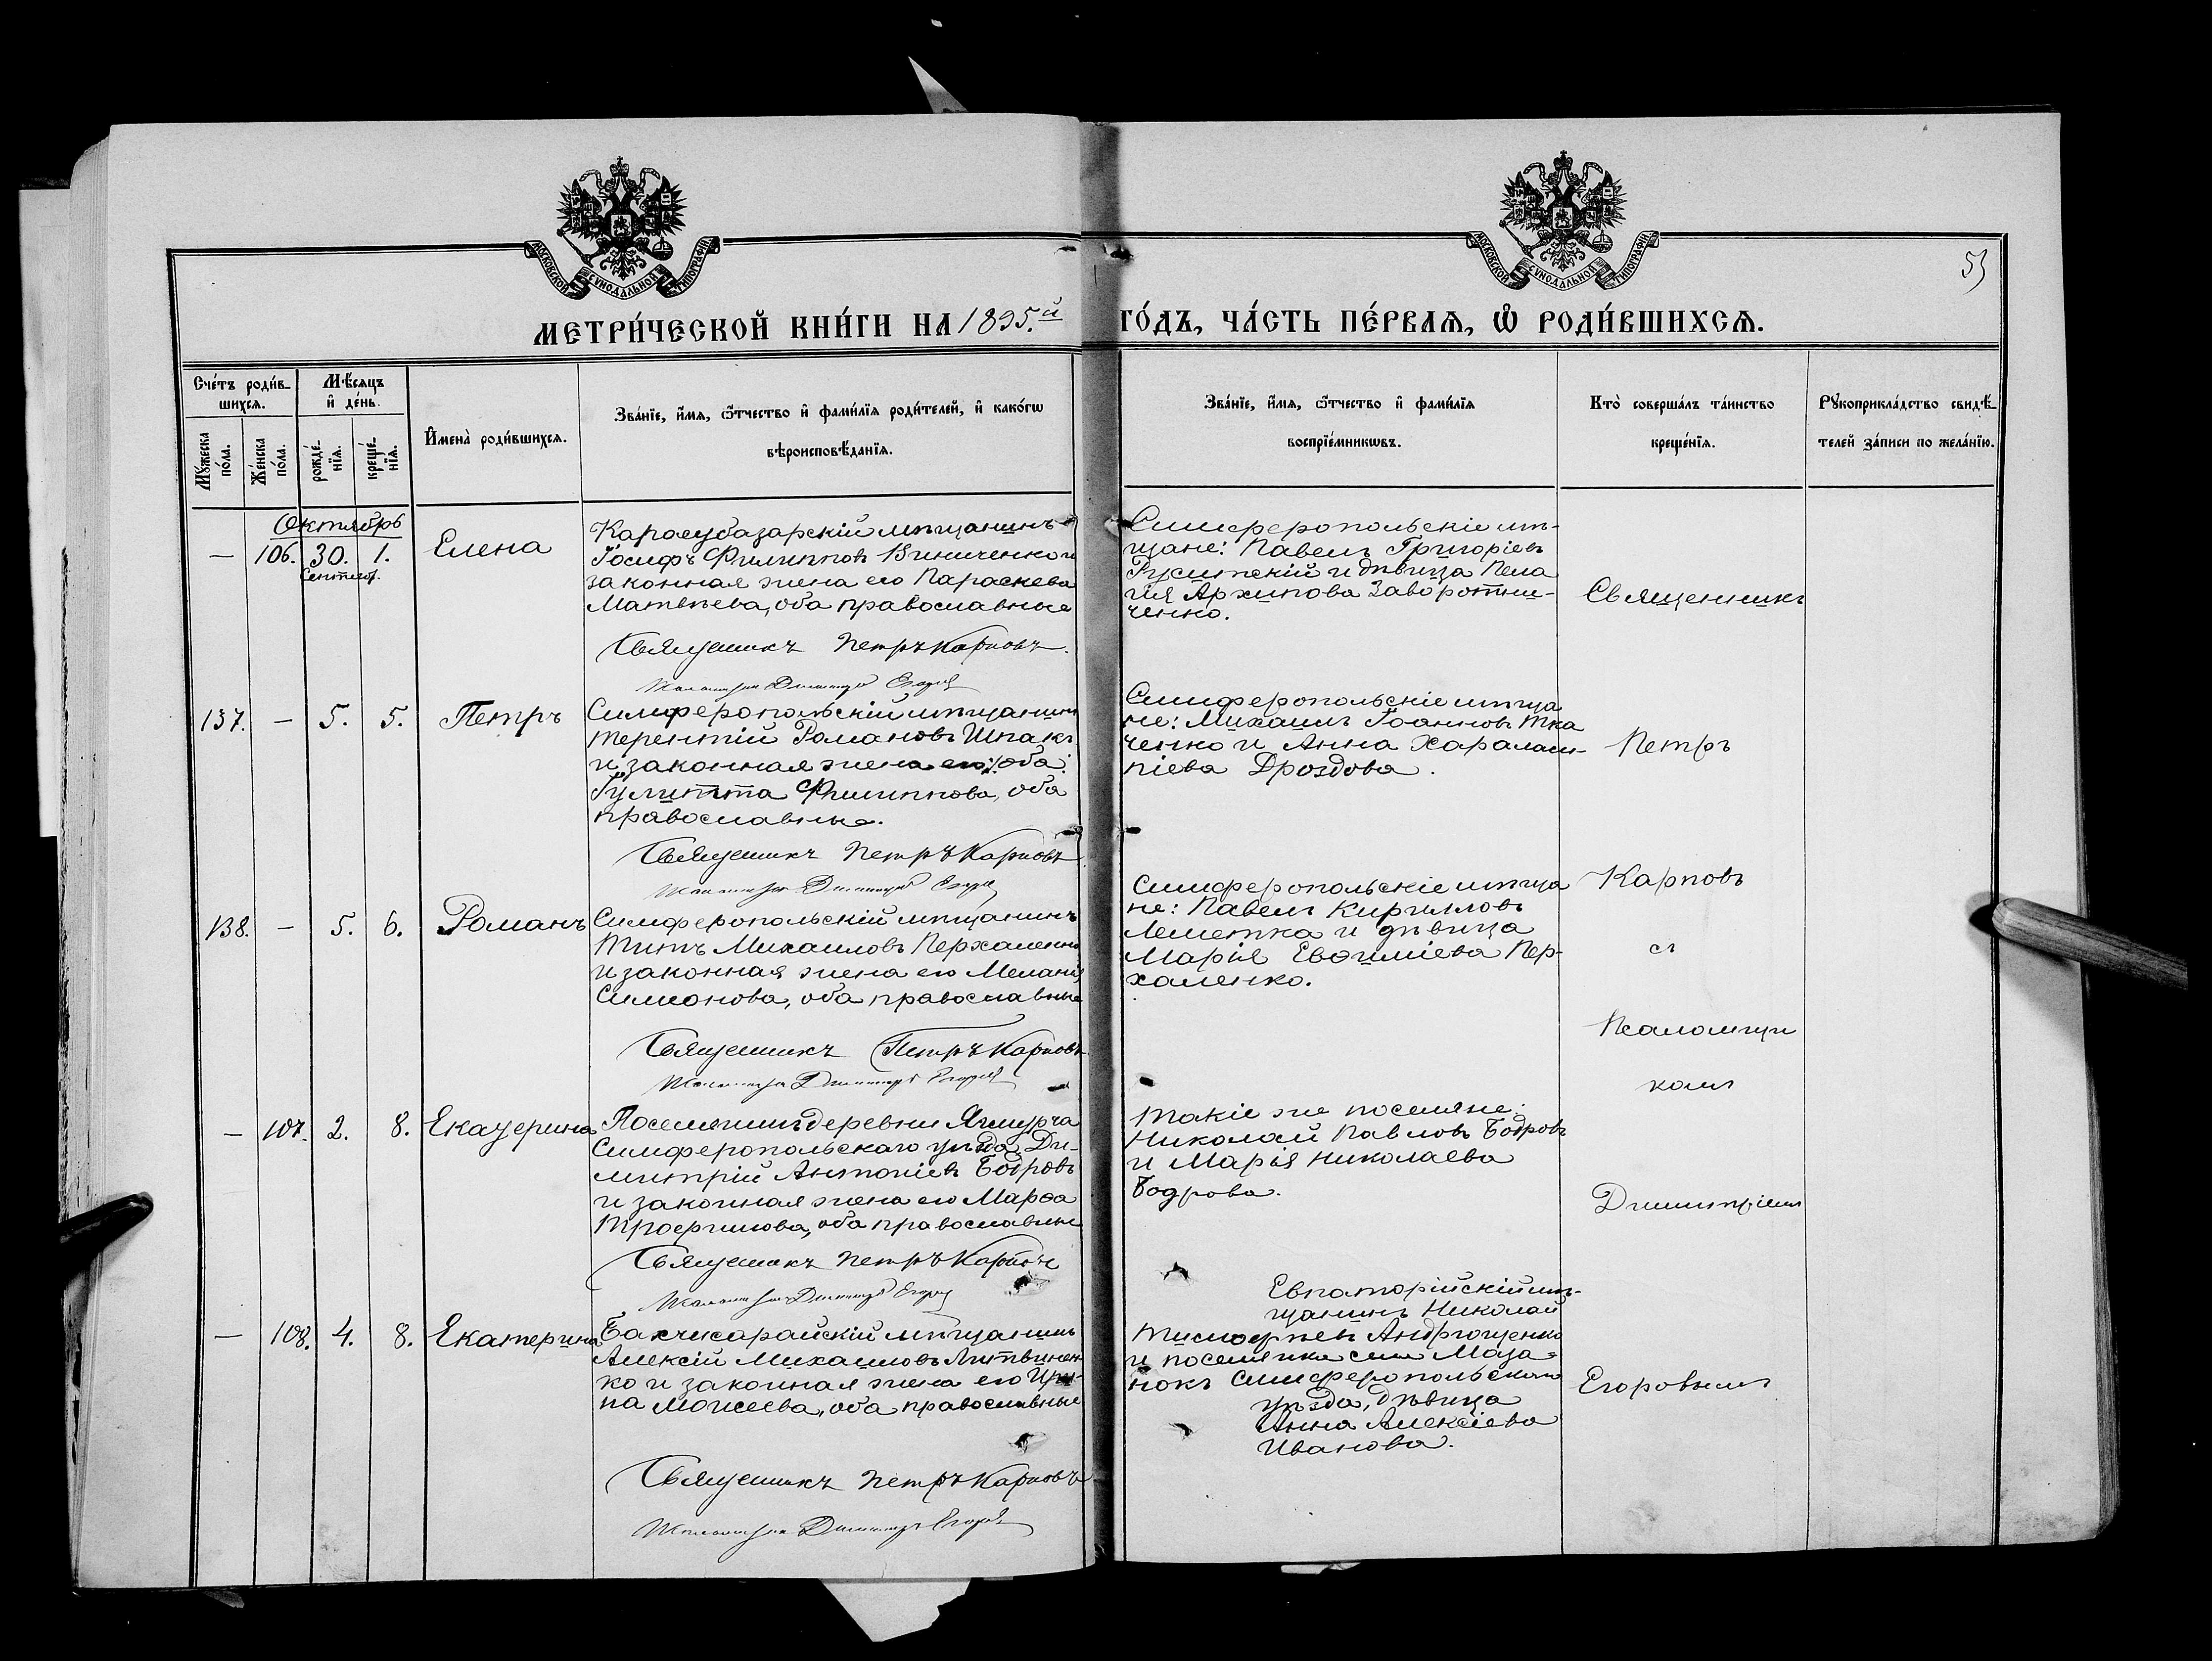 МОСКОВСКОЙ СУНОДАЛЬНОЙ ТИПОГРАФІИ
МОСКОВСКОЙ СУНОДАЛЬНОЙ ТИПОГРАФІИ
53
МЕТРИ́ЧЕСКОЙ КНИ́ГИ НА 1895.й ГО́ДЪ, ЧА́СТЬ ПЕ́РВАѦ, Ѡ҆ РОДИ́ВШИХСѦ.
Сче́тъ роди́в-
шихсѧ.
Мѣ́сяцъ
и҆ де́нь.
Му́жеска
по́ла.
Же́нска
по́ла.
рожде́-
нїѧ.
креще́-
нїѧ.
И҆мена̀ роди́вшихсѧ.
Зва́нїе, и҆́мѧ, ѻ҆́тчество и҆ фами́лїѧ роди́телей, и҆ како́гѡ
вѣроисповѣ́данїѧ.
Зва́нїе, и҆́мѧ, ѻ҆́тчество и҆ фами́лїѧ
воспрїе́мникѡвъ.
Кто̀ соверша́лъ та́инство
креще́нїѧ.
Рꙋкоприкла́дство свидѣ́-
телей за́писи по жела́нїю.
Октябрь
— 106. 30. 1. Елена
Сентяб.
Карасубазарскій мѣщанинъ
Іосифъ Филипповъ Виниченко и
законная жена его Параскева
Матвѣева, оба православные
Священникъ Петръ Карповъ.
Псаломщикъ Димитрій Егоровъ
Симферопольскіе мѣ-
щане: Павелъ Григоріевъ
и дѣвица Пела
гія Архипова Заворотни-
ченко.
Священникъ
137. — 5. 5. Петръ
Симферопольскій мѣщанинъ
Терентій Романовъ Шпакъ
и законная жена его: оба:
Іулитта Филиппова, оба
православные.
Священникъ Петръ Карповъ
Псаломщикъ Димитрій Егоровъ
Симферопольскіе мѣща
не: Михаилъ Іоанновъ Тка
ченко и Анна Харалам-
піева Дроздова.
Петръ
138. — 5. 6. Романъ
Симферопольскій мѣщанинъ
Титъ Михаиловъ Перхаленко
и законная жена его Меланія
Симонова, оба православные
Священникъ Петръ Карповъ
Псаломщикъ Димитрій Егоровъ
Симферопольскіе мѣща
не: Павелъ Кирилловъ
и дѣвица
Марія Евѳиміева Пер-
халенко.
Карповъ
съ
Псаломщи
комъ
— 107. 2. 8. Екатерина
Поселянинъ деревни Ягмурча
Симферопольскаго уѣзда Ди-
митрій Антоніевъ Бодровъ
и законная жена его Марѳа
Трофимова, оба православные
Священникъ Петръ Карповъ
Псаломщикъ Димитрій Егоровъ
Такіе же поселяне:
Николай Павловъ Бодровъ
и Марія Николаева
Бодрова.
Димитріемъ
— 108. 4. 8. Екатерина
Бахчисарайскій мѣщанинъ
Алексій Михаиловъ Литвинен-
ко и законная жена его Ири-
на Моисеева, оба православные
Священникъ Петръ Карповъ
Псаломщикъ Димитрій Егоровъ
Евпаторійскій мѣ-
щанинъ Николай
Тимоѳеевъ Андрющенко
и поселянка села Маза-
нокъ Симферопольскаго
уѣзда, дѣвица
Анна Алексіева
Иванова.
Егоровымъ